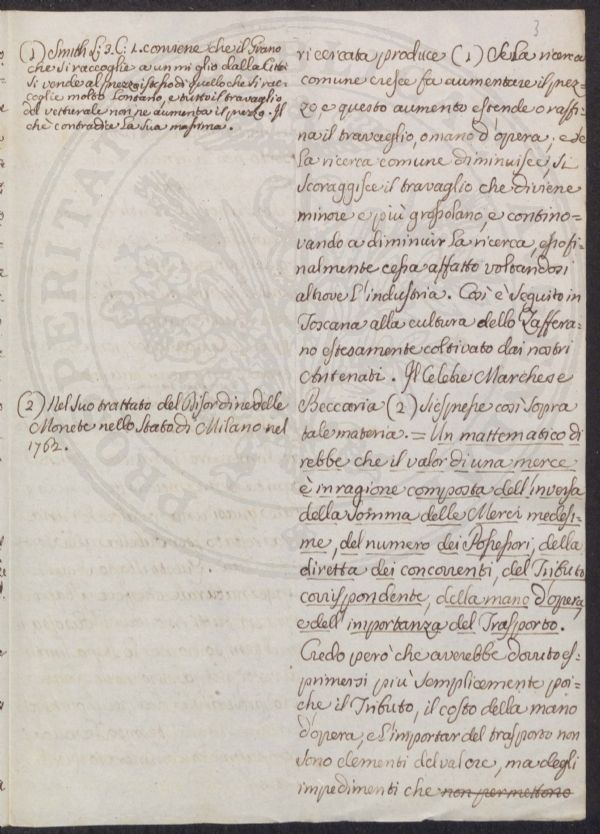 3
(1) Smith L: 3. C: 1. conviene che il Grano
che si raccoglie a un miglio dalla Città
si vende al prezzo istesso di quello che si rac-
coglie molto lontano, e tutto il travaglio
del vetturale non ne aumenta il prezzo. Il
chè contradia la sua massima.
(2) Nel suo trattato del Disordine delle
Monete nello Stato di Milano nel
1762.
ricercata produce (1) Se la ricerca
comune cresce fa aumentare il prez-
zo, e questo aumento estende o raffi-
na il travaglio, o mano d'opera; e se
la ricerca comune diminuisce, si
scoraggisce il travaglio che diviene
minore e più grossolano, e contino=
vando a diminuir la ricerca, esso fi-
nalmente cessa affatto voltandosi
altrove l'industria. Così è seguito in
Toscana alla cultura dello Zaffera-
no estesamente coltivato dai nostri
Antenati. Il Celebre Marchese
Beccaria (2) si espresse così sopra
tale materia. = Un mattematico di
rebbe che il valor di una merce
è in ragione composta dell'inversa
della Somma delle Merci medesi-
me, del numero dei Possessori, della
diretta dei concorrenti, del Tributo
corrispondente, della mano d'opera,
e dell'importanza del Trasporto.
Credo però che averebbe dovuto es-
primersi più semplicemente poi-
che il Tributo, il costo della mano
d'opera, e l'importar del trasporto non
sono elementi del valore, ma degli
impedimenti che non permettono
PROSPERITATI